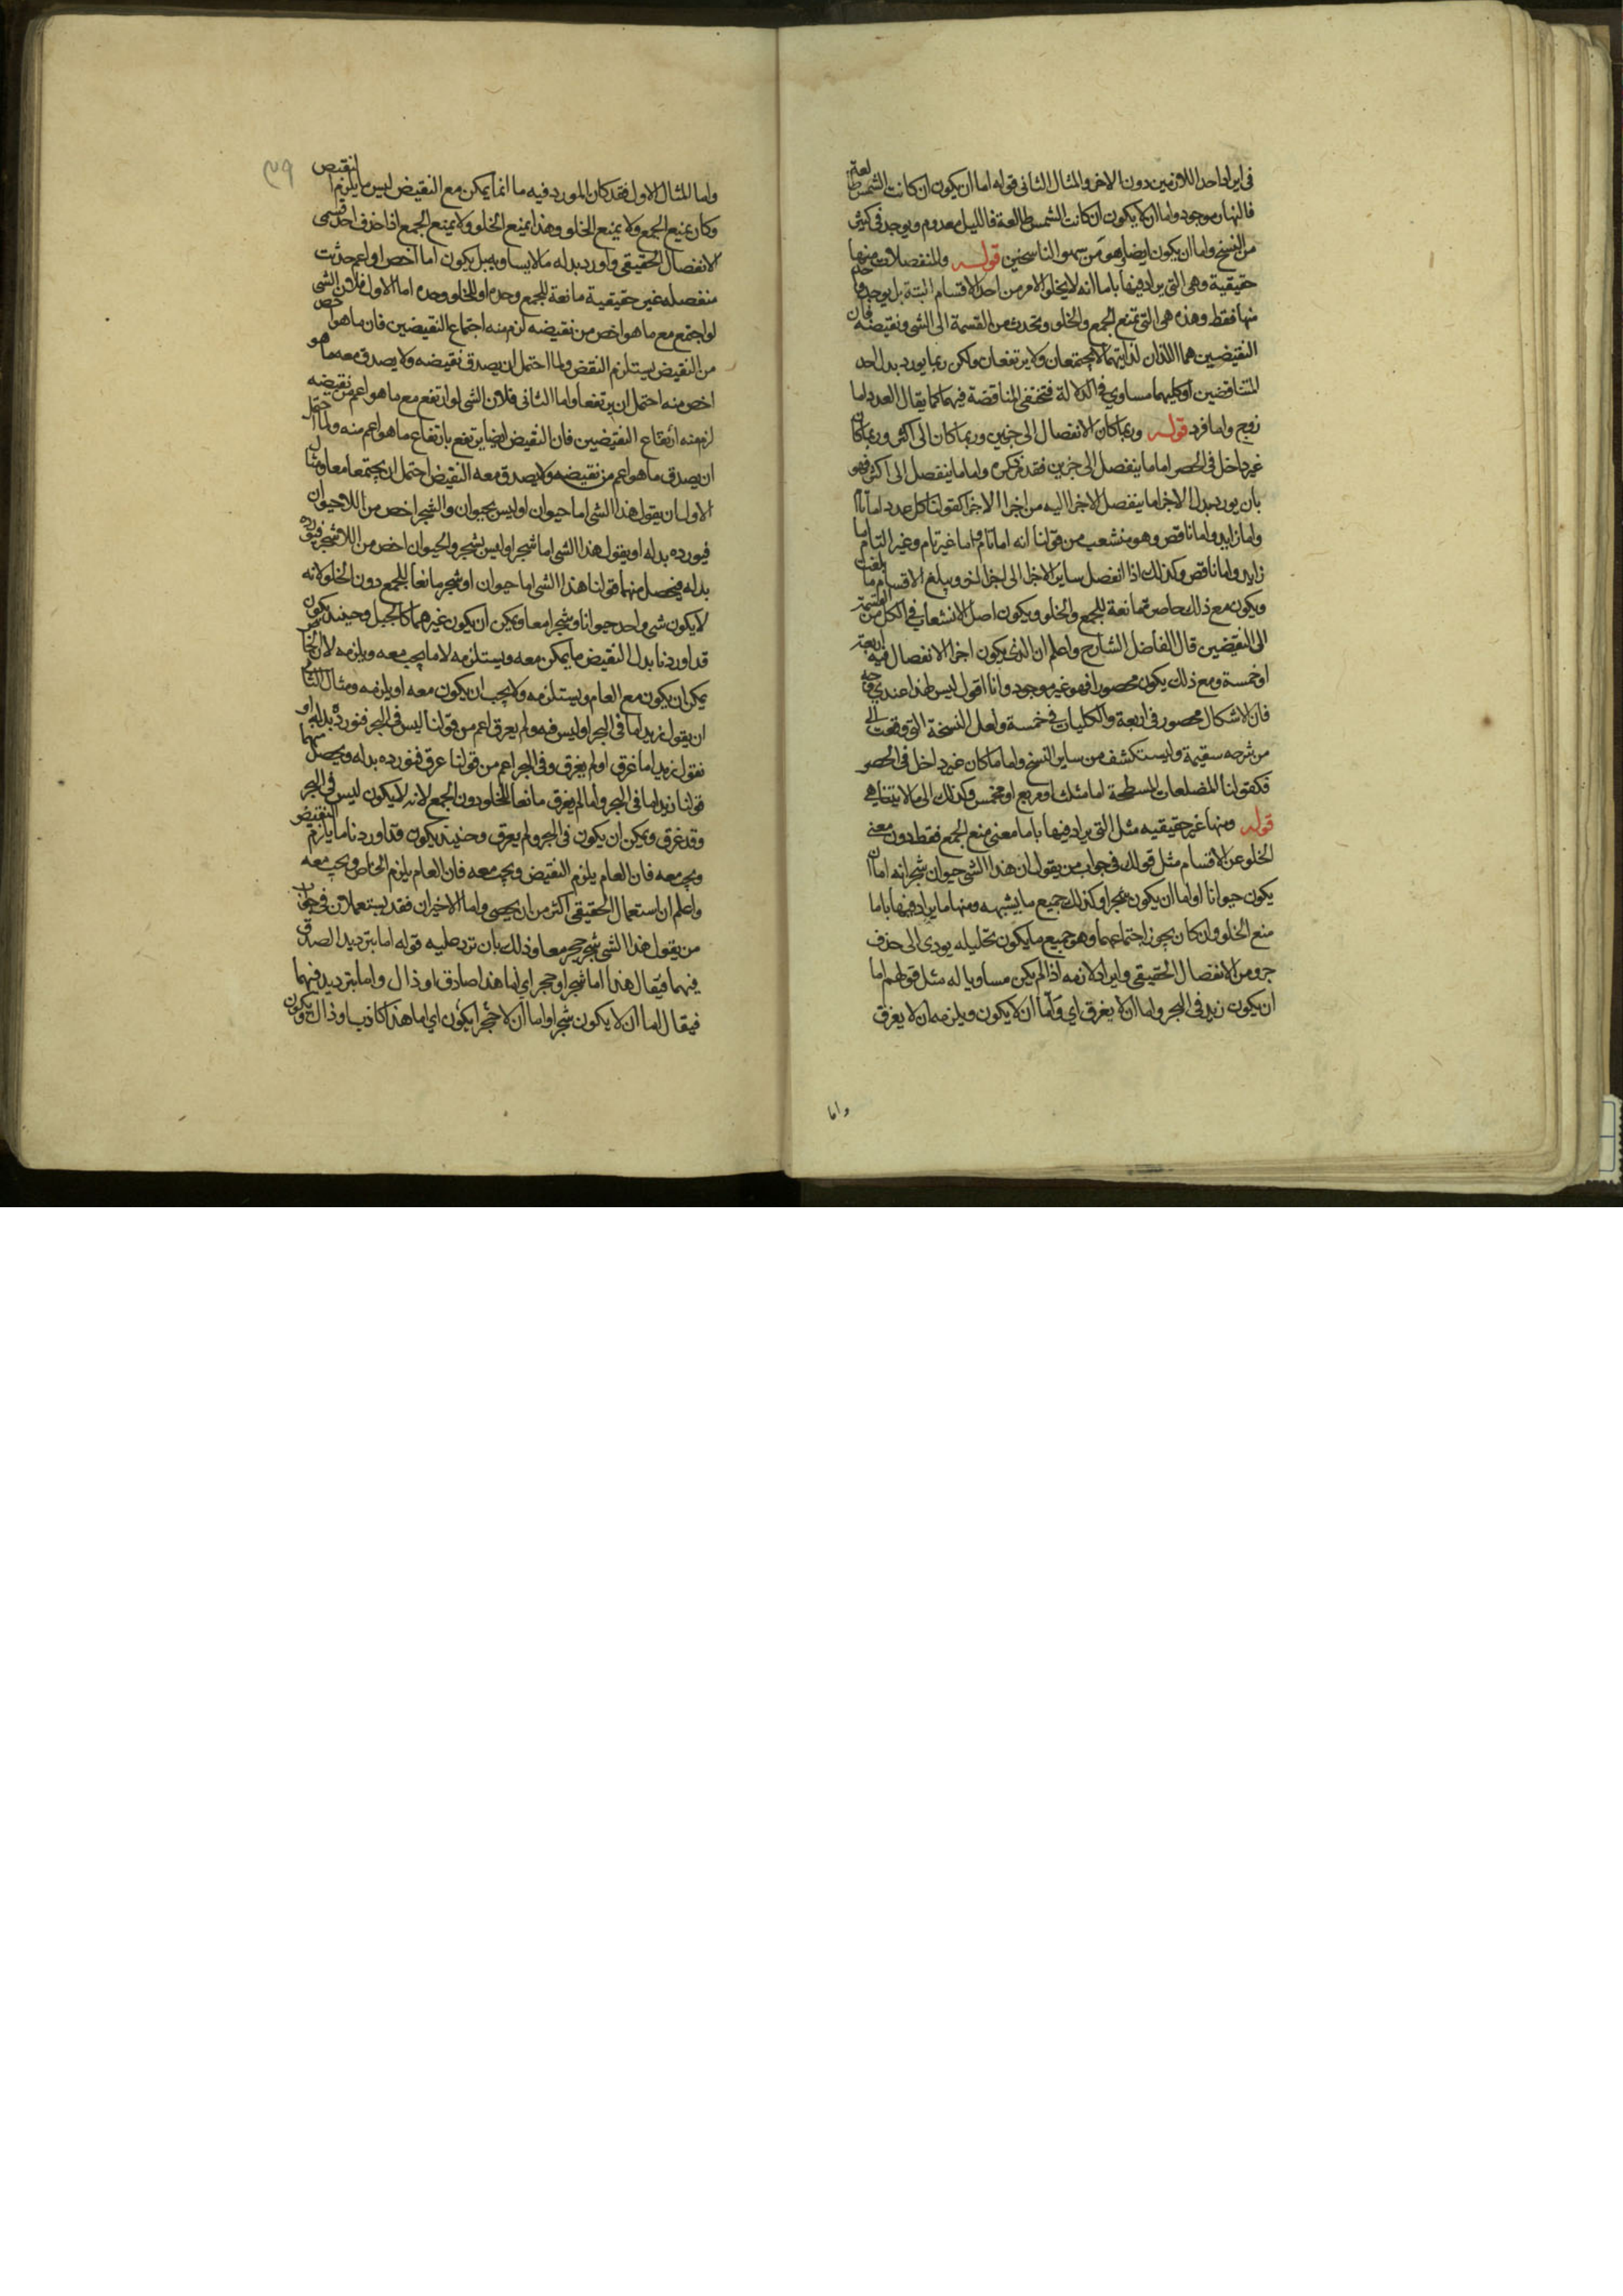 في ايراد احد اللازمين دون الاخر والمثال الثاني قوله اما ان يكون ان كانت الشمس طالعة
فالنهار موجود واما ان لا يكون ان كانت الشمس طالعة فالليل معدوم ويوجد في كثير
من النسخ واما ان يكون ايضا وهو من سهو الناسخين قوله والمنفصلات منها
حقيقية وهي التي يراد فيها باما انه لا يخلو الامر من احد الاقسام البتة بل يوجد واحد
منها فقط وهذه هي التي تمنع الجمع والخلو وتحدث من القسمة الى الشي ونقيضه فان
النقيضين هما اللذان لذاتيهما لا يجتمعان ولا يرتفعان ولكن ربما يورد بدل احد
المتناقضين او كليهما مساوي في الدلالة فتختفي المناقضة فيهما كما يقال العدد اما
زوج واما فرد قوله وربما كان الانفصال الى جزئين وربما كان الى اكثر وربما كان
غير داخل في الحصر اما ما ينفصل الى جزين فقد ذكره واما ما ينفصل الى اكثر فهو
بان يورد بدل الاجزا ما ينفصل الاجزا اليه من اجزا الاجزا كقولنا كل عدد اما تام
واما زايد واما ناقص وهو منشعب من قولنا انه اما تام واما غير تام وغير التام اما
زايد واما ناقص وكذلك اذا انفصل ساير الاجزا الى اجزا اخر ويبلغ الاقسام ما بلغت
ويكون مع ذلك حاصرة مانعة للجمع والخلو ويكون اصل الانشعاب في الكل من القسمة
الى النقيضين قال الفاضل الشارح واعلم ان الذي يكون اجزا الانفصال فيه اربعة
او خمسة ومع ذلك يكون محصورا فهو غير موجود وانا اقول ليس لهذا عندي وجه
فان الاشكال محصور في اربعة والكليات في خمسة ولعل النسخة التي وقعت الي
من شرحه سقيمة وليستكشف من ساير النسخ واما ما كان غير داخل في الحصر
فكقولنا المضلعات المسطحة اما مثلث او مربع او مخمس وكذلك الى ما لا يتناهى
قوله ومنها غير حقيقيه مثل التي يراد فيها باما معنى منع الجمع فقط دون معنى
الخلو عن الاقسام مثل قولك في جواب من يقول ان هذا الشي حيوان شجر انه اما ان
يكون حيوانا او اما ان يكون شجرا وكذلك جميع ما يشبهه ومنها ما يراد فيها باما
منع الخلو وان كان يجوز اجتماعهما وهو جميع ما يكون تحليله يودي الى حذف
جزو من الانفصال الحقيقي وايراد لازمه اذا لم يكن مساويا له مثل قولهم اما
ان يكون زيد في البحر واما ان لا يغرق اي واما ان لا يكون ويلزمه ان لا يغرق
واما
واما المثال الاول فقد كان المورد فيه ما انما يمكن مع النقيض ليس ما يلزم النقيض
وكان يمنع الجمع ولا يمنع الخلو وهذا يمنع الخلو ولا يمنع الجمع اذا حذف احد قسمي
الانفصال الحقيقي واورد بدله ما لا يساويه بل يكون اما اخص او اعم حدثت
منفصله غير حقيقية مانعة للجمع وحده او للخلو وحده اما الاول فلان الشي
لو اجتمع مع ما هو اخص من نقيضه لزم منه اجتماع النقيضين فان ما هو اخص
من النقيض يستلزم النقض ولما احتمل ان يصدق نقيضه ولا يصدق معه ما هو
اخص منه احتمل ان يرتفعا واما الثاني فلان الشي لو ارتفع مع ما هو اعم من نقيضه
لزم منه ارتفاع النقيضين فان النقيض ايضا يرتفع بارتفاع ما هو اعم منه ولما احتمل
ان يصدق ما هو اعم من نقيضه ولا يصدق معه النقيض احتمل ان يجتمعا معا ومثال
الاول ان يقول هذا الشي اما حيوان او ليس بحيوان والشجر اخص من اللاحيوان
فيورده بدله او يقول هذا الشي اما شجر او ليس بشجر والحيوان اخص من اللاشجر فيورده
بدله فيحصل منهما قولنا هذا الشي اما حيوان او شجر مانعا للجمع دون الخلو لانه
لا يكون شي واحد حيوانا وشجرا معا ويمكن ان يكون غيرهما كالجبل وحينئذ يكون
قد اوردنا بدل النقيض ما يمكن معه ويستلزمه لا ما يجب معه ويلزمه لان الخاص
يمكن ان يكون مع العام ويستلزمه ولا يجب ان يكون معه او يلزمه ومثال الثاني
ان يقول زيد اما في البحر او ليس فيه ولم يغرق اعم من قولنا ليس في البحر فنورده بدله او
نقول زيد اما غرق او لم يغرق وفي البحر اعم من قولنا غرق فنورده بدله ويحصل منهما
قولنا زيد اما في البحر واما لم يغرق مانعا للخلو دون الجمع لانه لا يكون ليس في البحر
وقد غرق ويمكن ان يكون في البحر ولم يغرق وحينئذ يكون قد اوردنا ما يلزم النقيض
ويجب معه فان العام يلزم النقيض ويجب معه فان العام يلزم الخاص ويجب معه
واعلم ان استعمال الحقيقي اكثر من ان يحصى واما الاخيران فقد يستعملان في جواب
من يقول هذا الشي شجر حجر معا وذلك بان ترد عليه قوله اما بترديد الصدق
فيهما فيقال هذا اما شجر او حجر اي اما هذا صادق او ذاك واما بترديد فيهما
فيقال اما ان لا يكون شجرا واما ان لا يكون حجرا اي اما هذا كاذب او ذاك ويكون